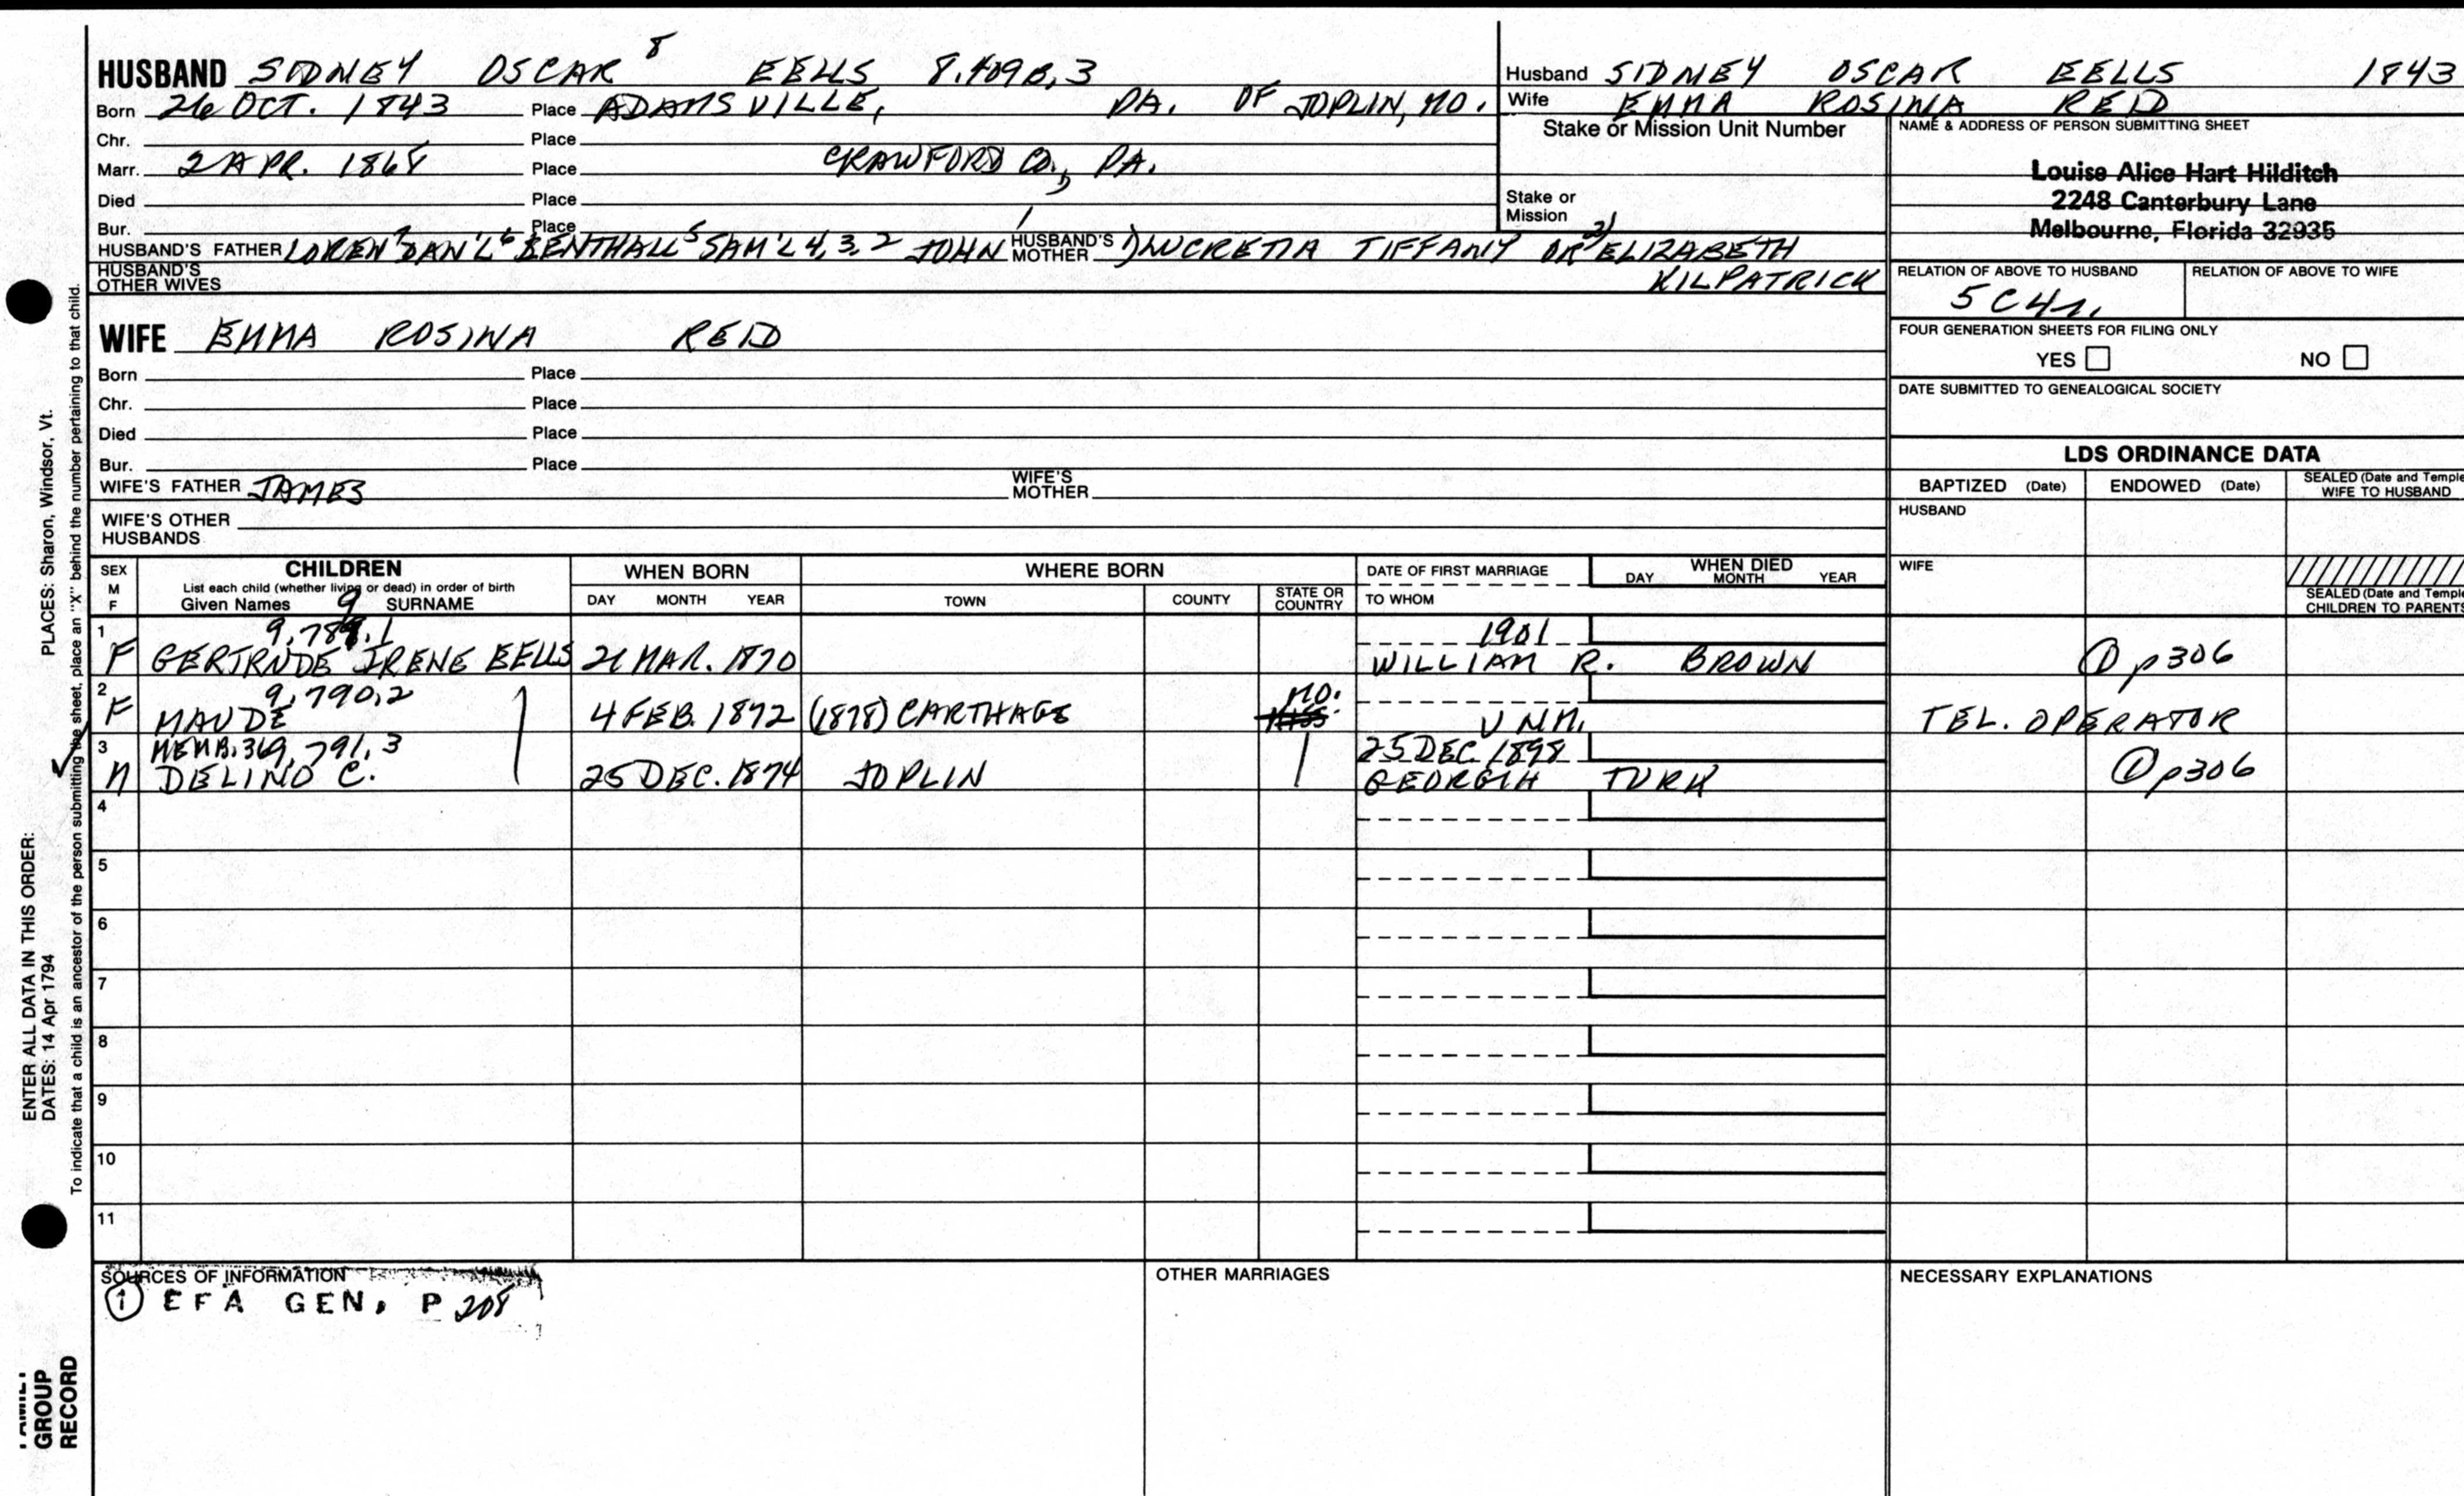 HUSBAND SIDNEY OSCAR 8 EELLS 8.409B,3
Born 26 OCT. 1843 Place ADAMSVILLE, PA. OF JOPLIN, MO.
Chr. Place
Marr. 2 APR. 1868 Place CRAWFORD CO., PA.
Died Place
Bur. Place
HUSBAND'S FATHER LOREN 7 DAN'L 6 BENTHALL 5 SAM'L 4,3,2 JOHN 1 HUSBAND'S MOTHER 1) LUCRETIA TIFFANY OR 2) ELIZABETH
KILPATRICK
HUSBAND'S OTHER WIVES
Husband SIDNEY OSCAR EELLS 1843
Wife EMMA ROSINA REID
Stake or Mission Unit Number
Stake or
Mission
NAME & ADDRESS OF PERSON SUBMITTING SHEET
Louise Alice Hart Hilditch
2248 Canterbury Lane
Melbourne, Florida 32935
RELATION OF ABOVE TO HUSBAND RELATION OF ABOVE TO WIFE
5C4r.
FOUR GENERATION SHEETS FOR FILING ONLY
YES NO
DATE SUBMITTED TO GENEALOGICAL SOCIETY
WIFE EMMA ROSINA REID
Born Place
Chr. Place
Died Place
Bur. Place
WIFE'S FATHER JAMES WIFE'S MOTHER
WIFE'S OTHER
HUSBANDS
LDS ORDINANCE DATA
BAPTIZED (Date) ENDOWED (Date) SEALED (Date and Temple
WIFE TO HUSBAND
HUSBAND
WIFE
SEALED (Date and Temple
CHILDREN TO PARENTS
SEX
M
F
CHILDREN
List each child (whether living or dead) in order of birth
Given Names 9 SURNAME
WHEN BORN
DAY MONTH YEAR
WHERE BORN
TOWN COUNTY STATE OR COUNTRY
DATE OF FIRST MARRIAGE
TO WHOM
WHEN DIED
DAY MONTH YEAR
1 9,789.1 1901
F GERTRUDE IRENE EELLS 21 MAR. 1870 WILLIAM R. BROWN ① p306
2 9,790,2 MO.
F MAUDE 4 FEB. 1872 (1878) CARTHAGE UNM. TEL. OPERATOR
3 MEMB. 369,791,3 25 DEC. 1898
M DELINO C. 25 DEC. 1874 JOPLIN GEORGIA TURK ① p306
4
5
6
7
8
9
10
11
SOURCES OF INFORMATION
① EFA GEN, P 208
OTHER MARRIAGES
NECESSARY EXPLANATIONS
ENTER ALL DATA IN THIS ORDER:
DATES: 14 Apr 1794
PLACES: Sharon, Windsor, Vt.
To indicate that a child is an ancestor of the person submitting the sheet, place an "X" behind the number pertaining to that child.
GROUP
RECORD